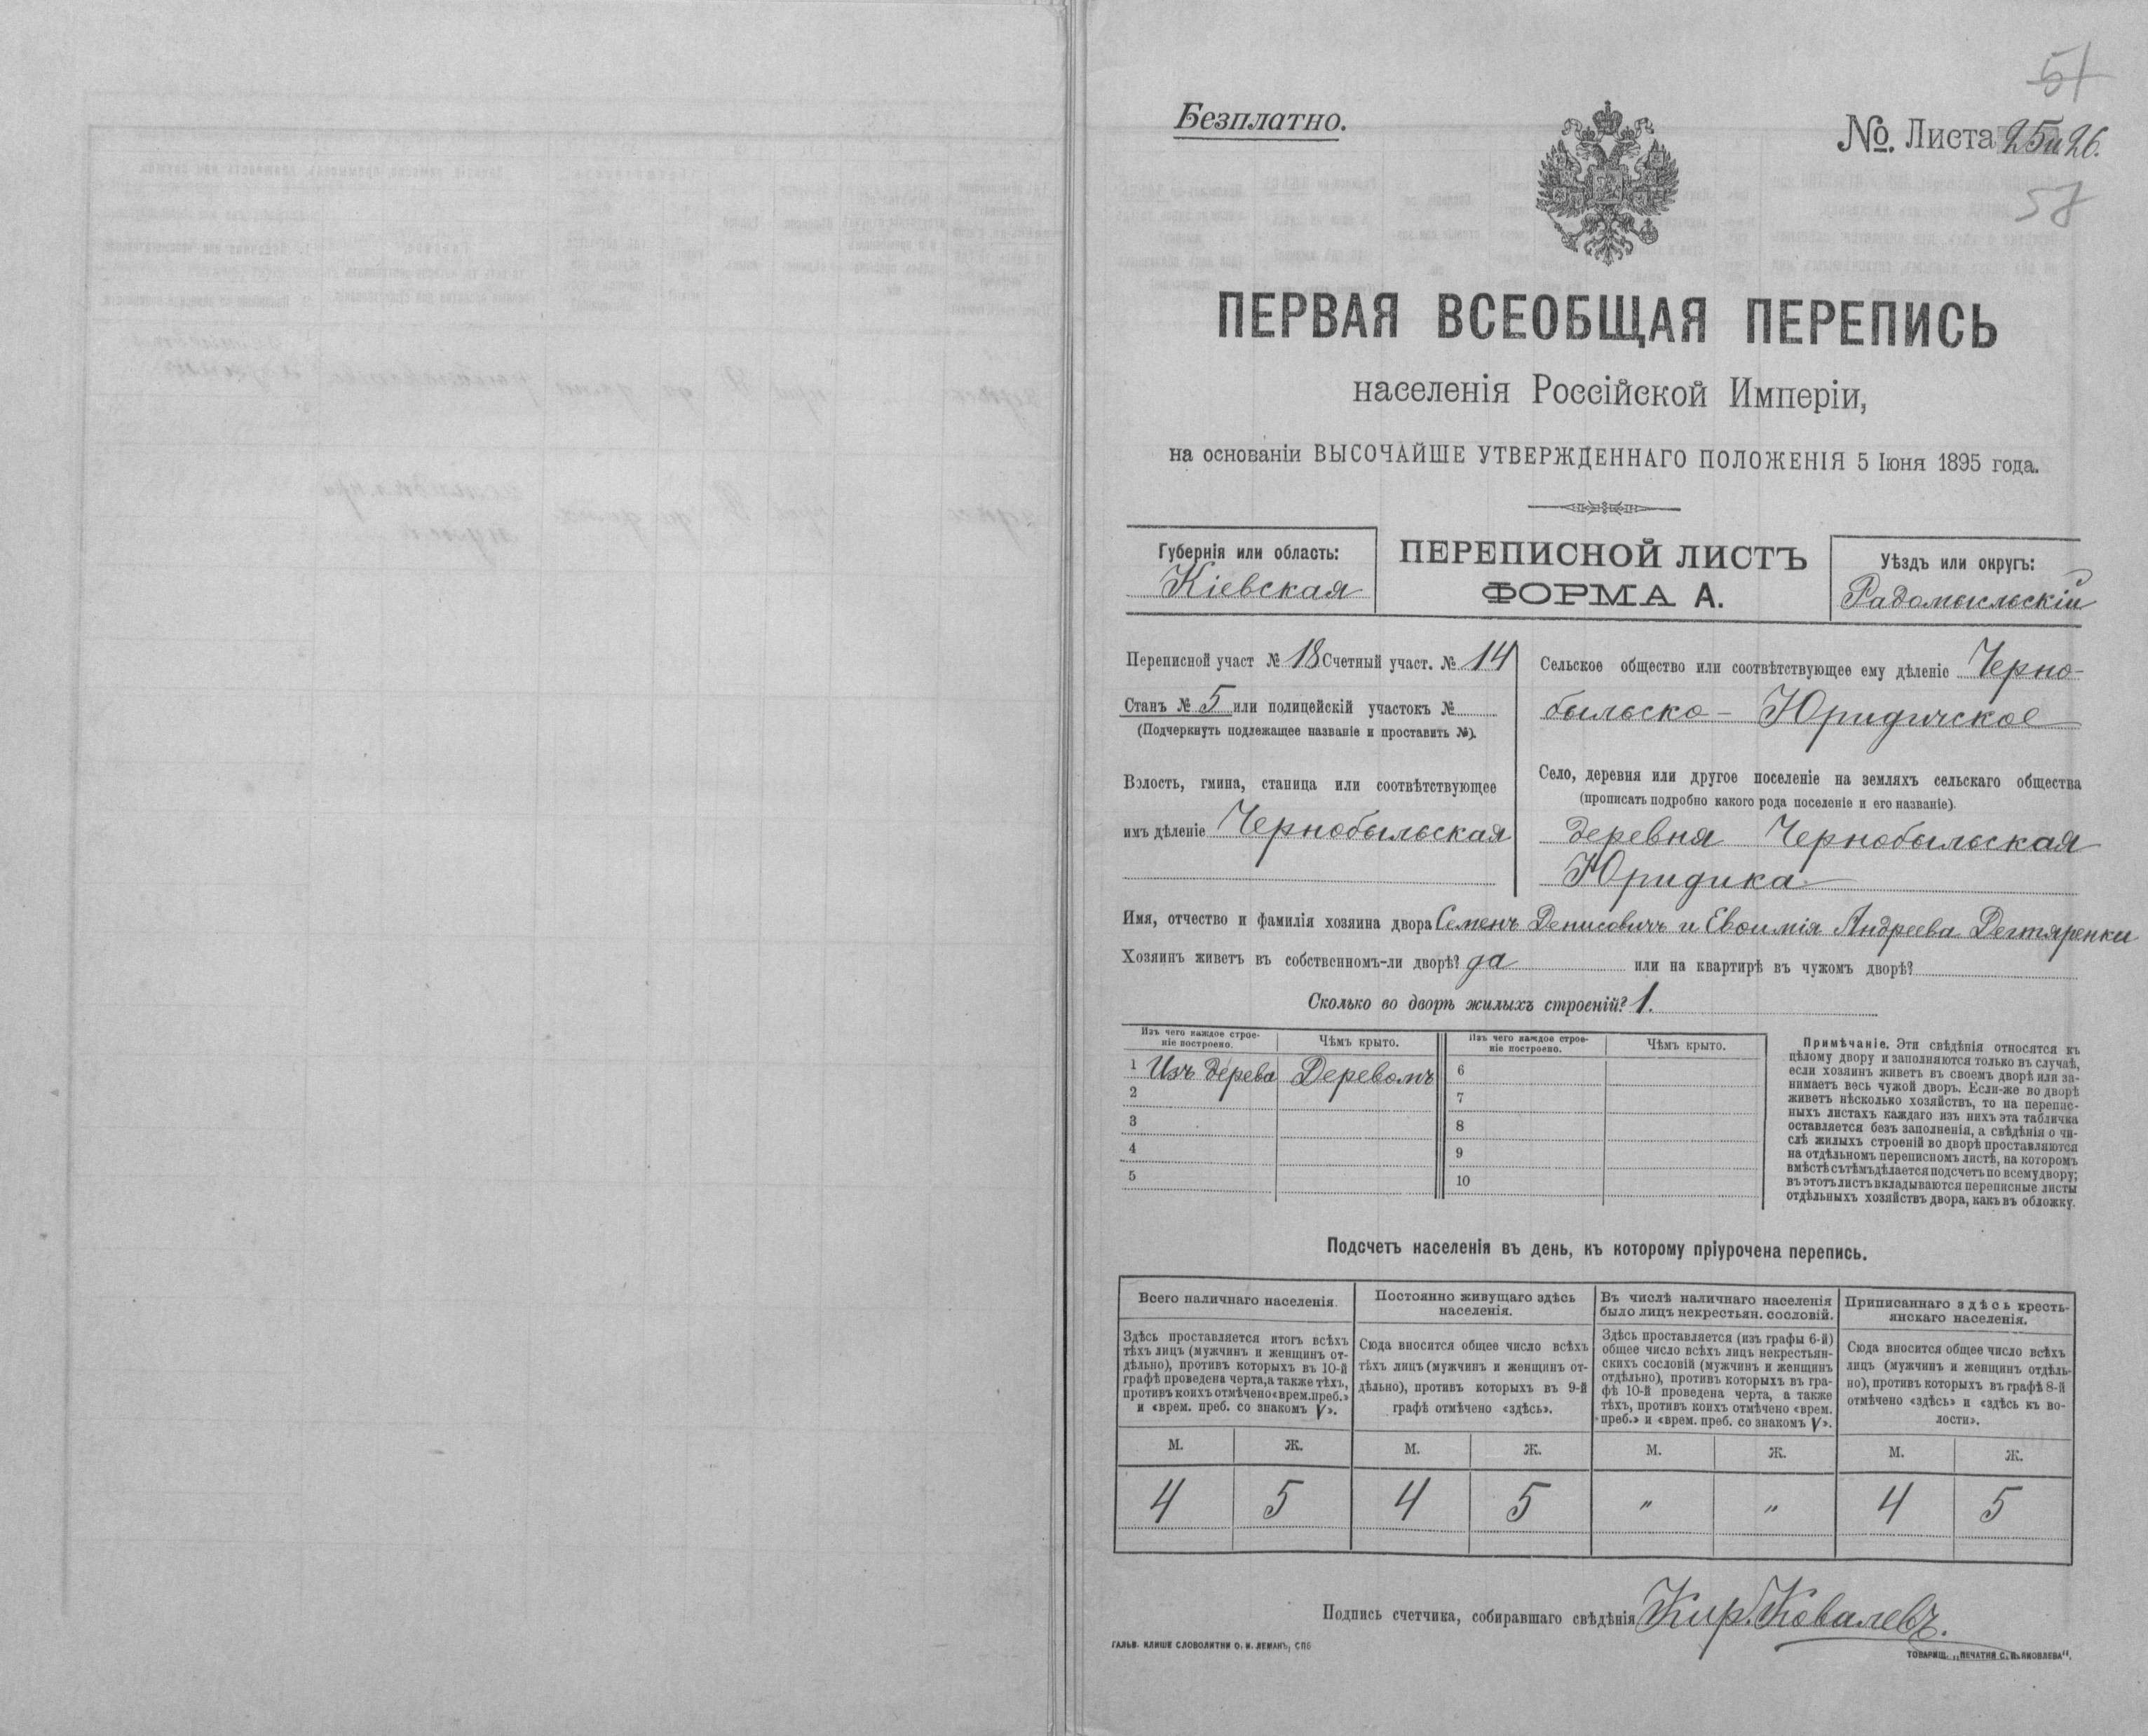 51
Безплатно.
№. Листа 25 и 26.
58
ПЕРВАЯ ВСЕОБЩАЯ ПЕРЕПИСЬ
населенія Россійской Имперіи,
на основаніи ВЫСОЧАЙШЕ УТВЕРЖДЕННАГО ПОЛОЖЕНІЯ 5 Іюня 1895 года.
Губернія или область:
Кіевская
ПЕРЕПИСНОЙ ЛИСТЪ
ФОРМА А.
Уѣздъ или округъ:
Радомысльскій
Переписной участ № 18. Счетный участ. № 14
Станъ № 5 или полицейскій участокъ №
(Подчеркнуть подлежащее названіе и проставить №).
Волость, гмина, станица или соотвѣтствующее
имъ дѣленіе Чернобыльская
Сельское общество или соотвѣтствующее ему дѣленіе Черно-
быльско - Юридичское
Село, деревня или другое поселеніе на земляхъ сельскаго общества
(прописать подробно какого рода поселеніе и его названіе).
деревня Чернобыльская
Юридика
Имя, отчество и фамилія хозяина двора Семенъ Денисовичъ и Евоимія Андреева Дегтяренки
Хозяинъ живетъ въ собственномъ-ли дворѣ? да или на квартирѣ въ чужомъ дворѣ?
Сколько во дворѣ жилыхъ строеній? 1.
Изъ чего каждое строе-
ніе построено.
Чѣмъ крыто.
Изъ чего каждое строе-
ніе построено.
Чѣмъ крыто.
1 Изъ дерева Деревомъ 6
2 7
3 8
4 9
5 10
Примѣчаніе. Эти свѣдѣнія относятся къ
цѣлому двору и заполняются только въ случаѣ,
если хозяинъ живетъ въ своемъ дворѣ или за-
нимаетъ весь чужой дворъ. Если-же во дворѣ
живетъ нѣсколько хозяйствъ, то на перепис-
ныхъ листахъ каждаго изъ нихъ эта табличка
оставляется безъ заполненія, а свѣдѣнія о чи-
слѣ жилыхъ строеній во дворѣ проставляются
на отдѣльномъ переписномъ листѣ, на которомъ
вмѣстѣ съ тѣмъ дѣлается подсчетъ по всему двору;
въ этотъ листъ вкладываются переписные листы
отдѣльныхъ хозяйствъ двора, какъ въ обложку.
Подсчетъ населенія въ день, къ которому пріурочена перепись.
Всего наличнаго населенія.
Здѣсь проставляется итогъ всѣхъ
тѣхъ лицъ (мужчинъ и женщинъ от-
дѣльно), противъ которыхъ въ 10-й
графѣ проведена черта, а также тѣхъ,
противъ коихъ отмѣчено «врем. преб.»
и «врем. преб. со знакомъ V».
Постоянно живущаго здѣсь
населенія.
Сюда вносится общее число всѣхъ
тѣхъ лицъ (мужчинъ и женщинъ от-
дѣльно), противъ которыхъ въ 9-й
графѣ отмѣчено «здѣсь».
Въ числѣ наличнаго населенія
было лицъ некрестьян. сословій.
Здѣсь проставляется (изъ графы 6-й)
общее число всѣхъ лицъ некрестьян-
скихъ сословій (мужчинъ и женщинъ
отдѣльно), противъ которыхъ въ гра-
фѣ 10-й проведена черта, а также
тѣхъ, противъ коихъ отмѣчено «врем.
преб.» и «врем. преб. со знакомъ V».
Приписаннаго здѣсь кресть-
янскаго населенія.
Сюда вносится общее число всѣхъ
лицъ (мужчинъ и женщинъ отдѣль-
но), противъ которыхъ въ графѣ 8-й
отмѣчено «здѣсь» и «здѣсь къ во-
лости».
М. Ж. М. Ж. М. Ж. М. Ж.
4 5 4 5 " " 4 5
Подпись счетчика, собиравшаго свѣдѣнія Кир. Ковалевъ.
ГАЛЬВ. КЛИШЕ СЛОВОЛИТНИ О. И. ЛЕМАНЪ, СПБ
ТОВАРИЩ. „ПЕЧАТНЯ С. П. ЯКОВЛЕВА".